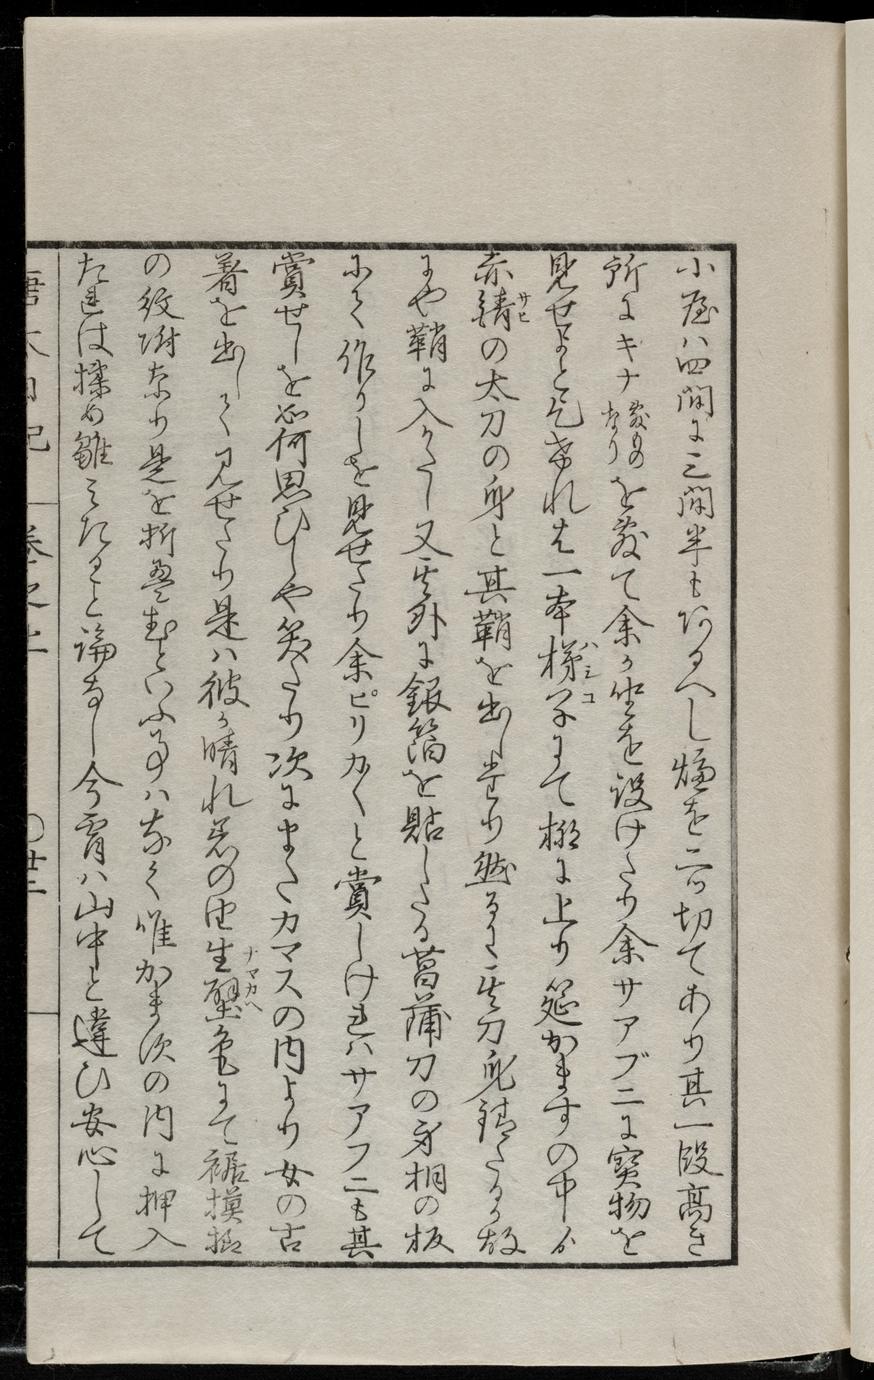 小屋ハ四間に三間半もあるへし爐を二ツ切てあり其一段高き
所にキナ敷ものなりを敷て余か坐を設けたり余サアブニに寳物を
見せよと乞けれは一本梯子ハシコにて棚に上り筵かますの中ゟ
赤錆サヒの太刀の身と其鞘を出し来り然るに其刀身錆たるか故
にや鞘に入かたし又其外に銀箔を貼したる菖蒲刀の身桐の板
にて作りしを見せたり余ピリカ〱と賞しけれハサアフニも其
賞せしを如何思ひしや笑たり次にまたカマスの内より女の古
着を出して見せたり是ハ彼か晴れ着の由生壁ナマカヘ色にて裾摸様
の紋附なり是を折畳むといふ事ハなく唯かますの内に押入
たれは揉め皺みたること論なし今宵ハ山中と違ひ安心して
唐太日記 巻之上 〇廿二